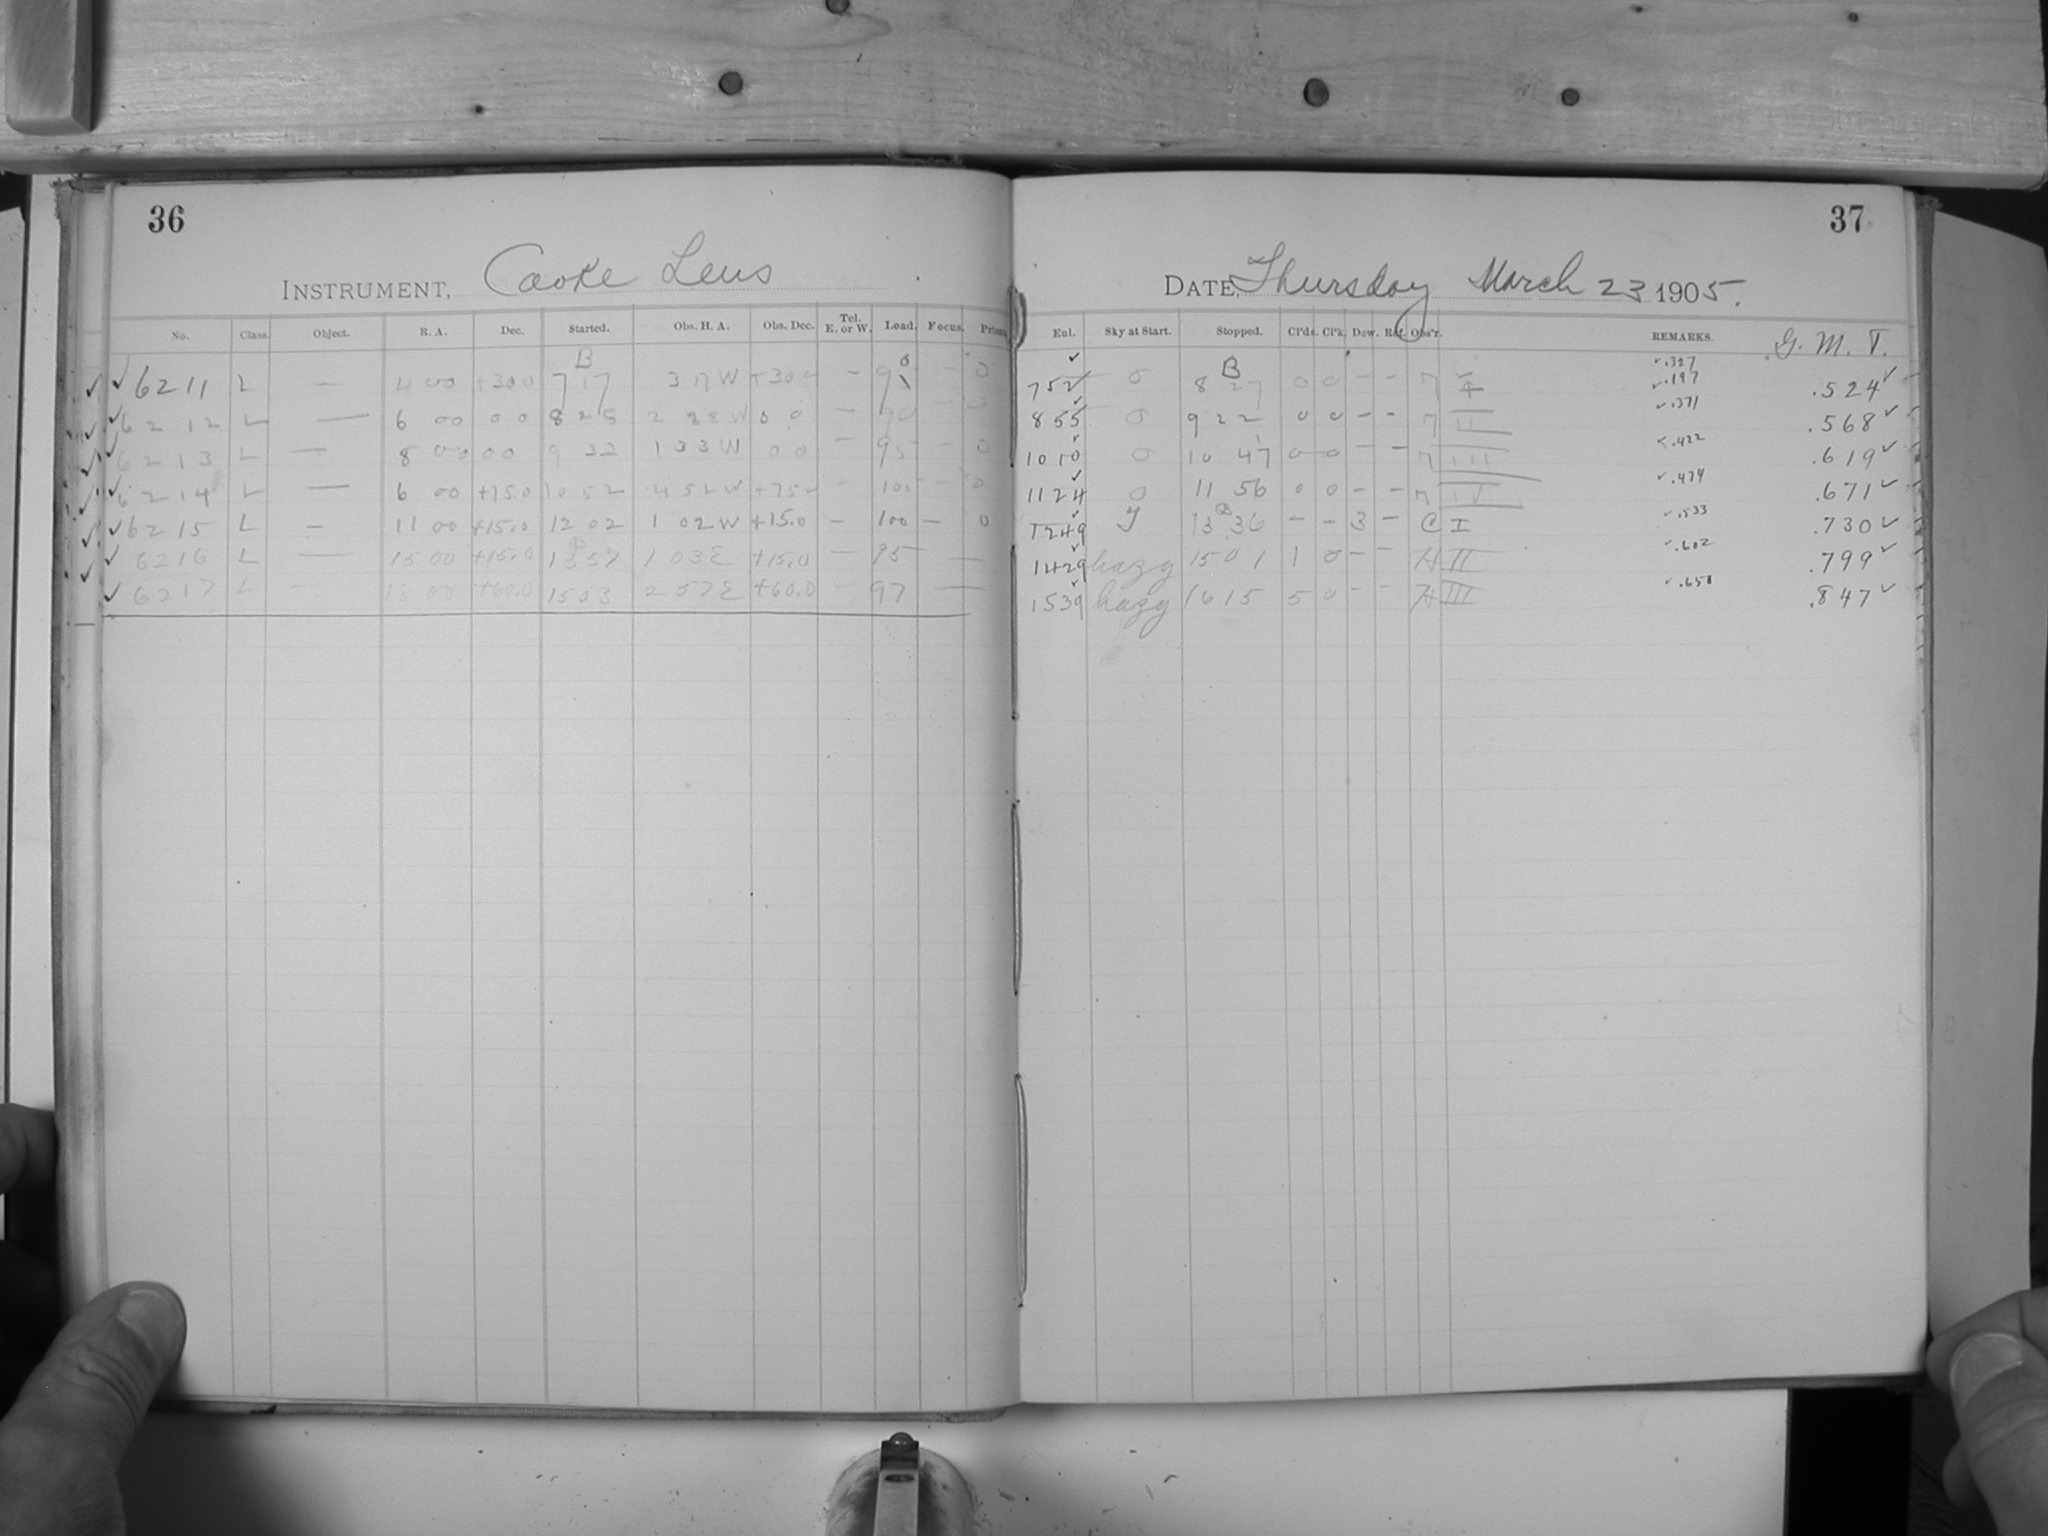 36
INSTRUMENT, Cooke Lens
No. Class. Object. R. A. Dec. Started. Obs. H. A. Obs. Dec. Tel. E. or W. Load. Focus. Prism.
B
6211 L — 4 00 +30.0 7 17 3 17 W +30.0 — — 0
6212 L — 6 00 0.0 8 28 2 28 W 0.0 — 90 —
6213 L — 8 00 0.0 9 22 1 33 W 0.0 — 95 — 0
6214 L — 6 00 +75.0 10 52 4 52 W +75.0 — 105 — 0
6215 L — 11 00 +15.0 12 02 1 02 W +15.0 — 100 — 0
6216 L — 15 00 +15.0 13 57 1 03 E +15.0 — 95 —
6217 L — 18 00 +60.0 15 03 2 57 E +60.0 — 97 —
37
DATE, Thursday March 23 1905.
Eul. Sky at Start. Stopped. Cl'ds. Cl'k. Dew. Ref. Obs'r. REMARKS. G. M. T.
✓ B ✓.327
7 52 0 8 27 0 0 - - I ✓.197 .524 ✓
8 55 0 9 22 0 0 - - II ✓.371 .568 ✓
10 10 0 10 47 0 0 - - III .422 .619 ✓
11 24 0 11 56 0 0 - - IV ✓.474 .671 ✓
12 49 y 13 36 - - 3 - C I ✓.533 .730 ✓
14 29 hazy 15 01 1 0 - - H II ✓.602 .799 ✓
15 39 hazy 16 15 5 0 - - H III ✓.650 .847 ✓